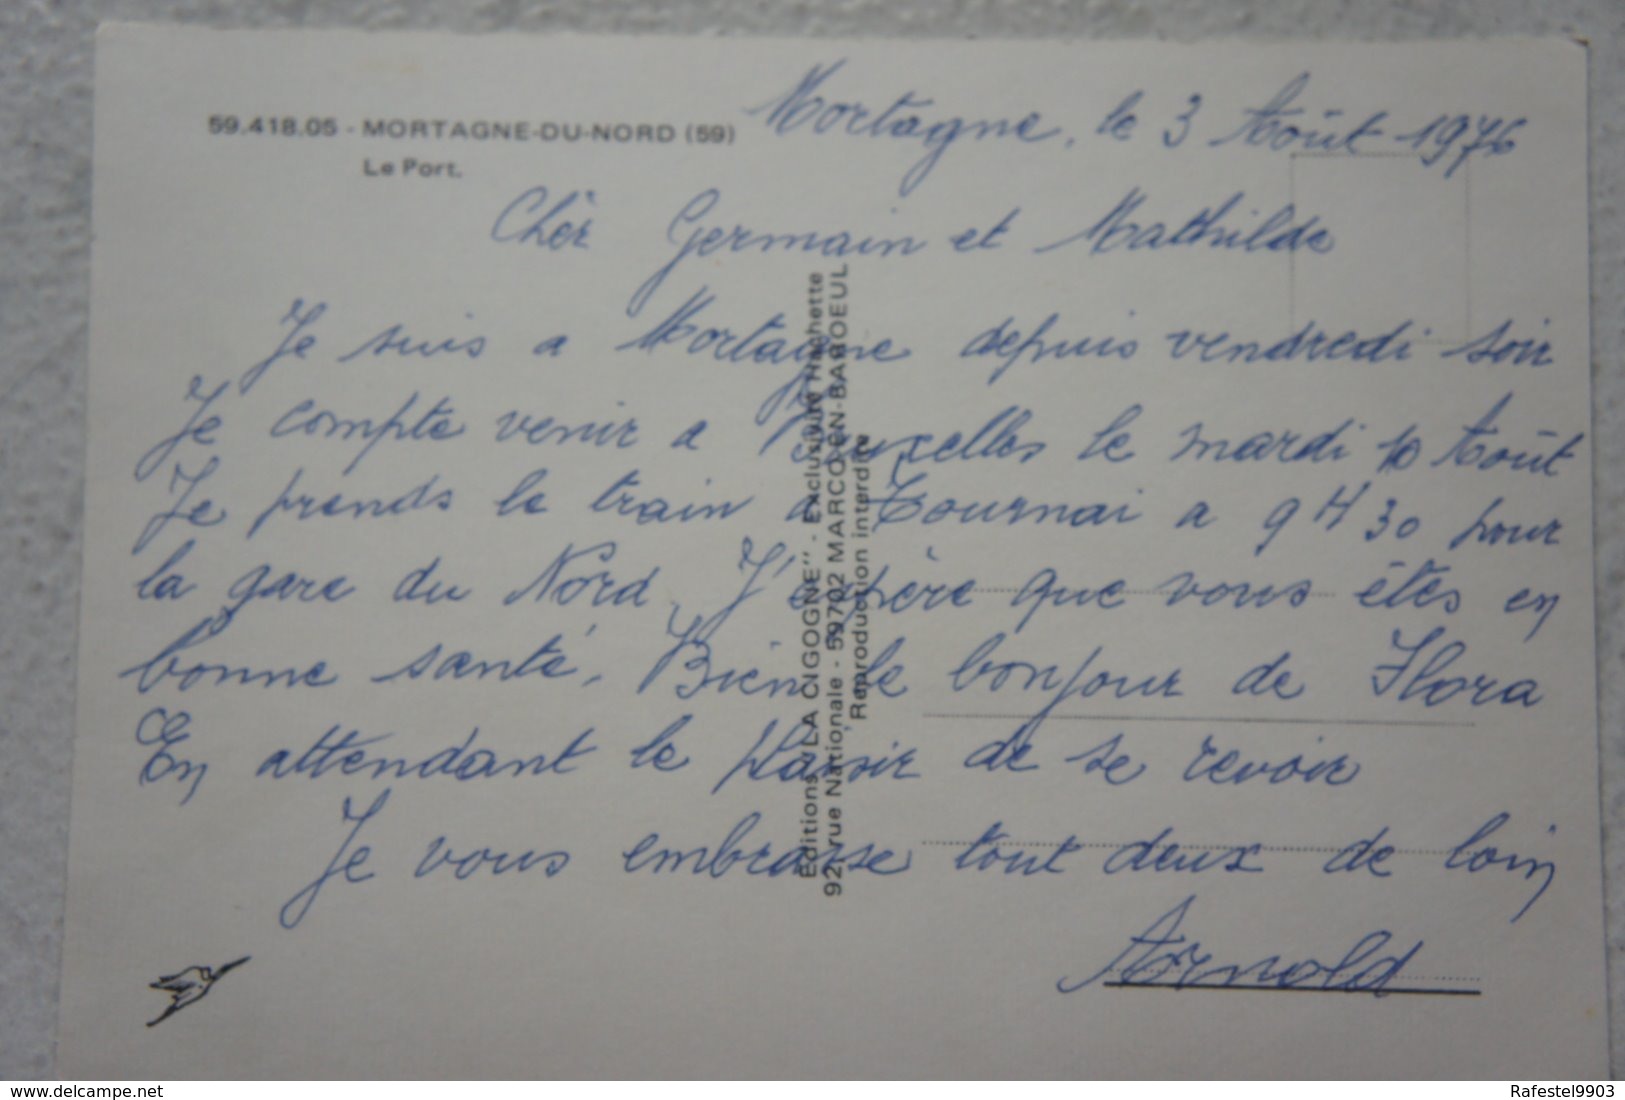 59.418.05 - MORTAGNE-DU-NORD (59)
Le Port.
Mortagne, le 3 Août 1976
Chèr Germain et Mathilde
Je suis a Mortagne depuis vendredi soir
Je compte venir a Bruxelles le mardi 10 Août
Je prends le train a Tournai a 9 H 30 pour
la gare du Nord, J'espère que vous êtes en
bonne santé, Bien le bonjour de Flora
En attendant le plaisir de se revoir
Je vous embrasse tout deux de loin
Arnold
Editions "LA CIGOGNE" - Exclusivité Hachette
92, rue Nationale - 59702 MARCQ-EN-BARŒUL
Reproduction interdite
www.delcampe.net
Rafestel9903